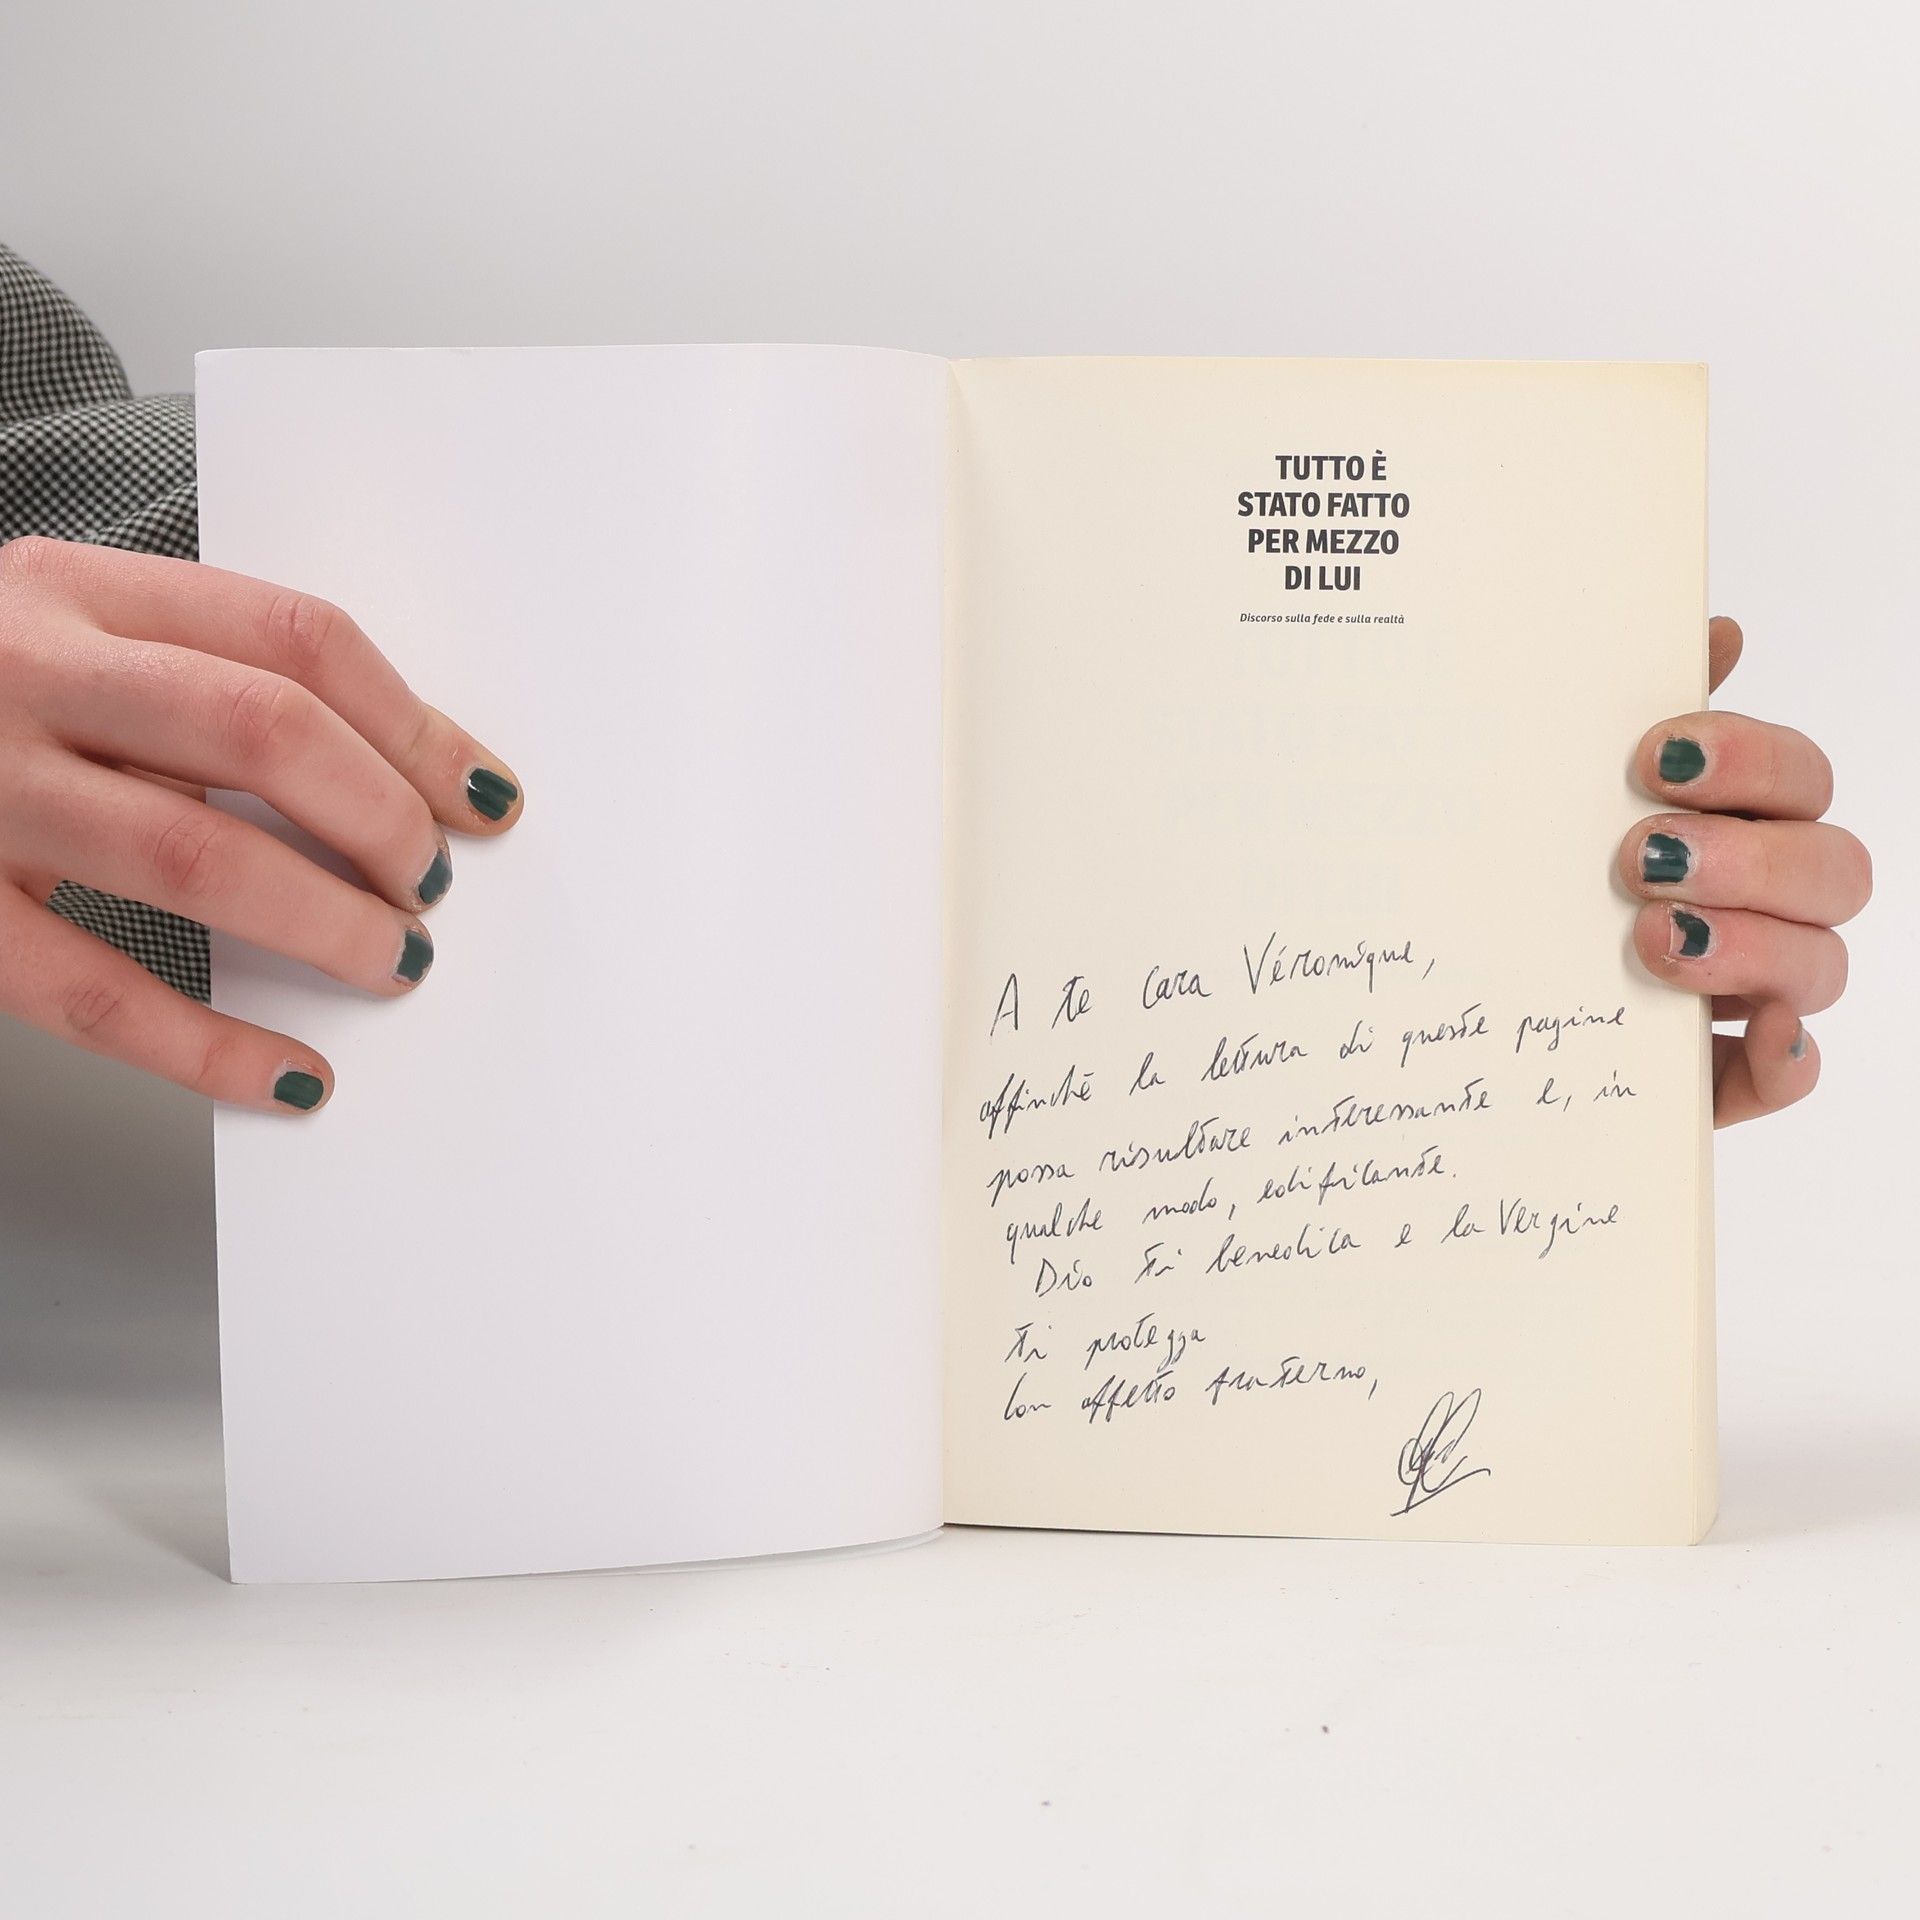 TUTTO È
STATO FATTO
PER MEZZO
DI LUI
Discorso sulla fede e sulla realtà
A te cara Véronique,
affinchè la lettura di queste pagine
possa risultare interessante e, in
qualche modo, edificante.
Dio ti benedica e la Vergine
ti protegga
Con affetto fraterno,